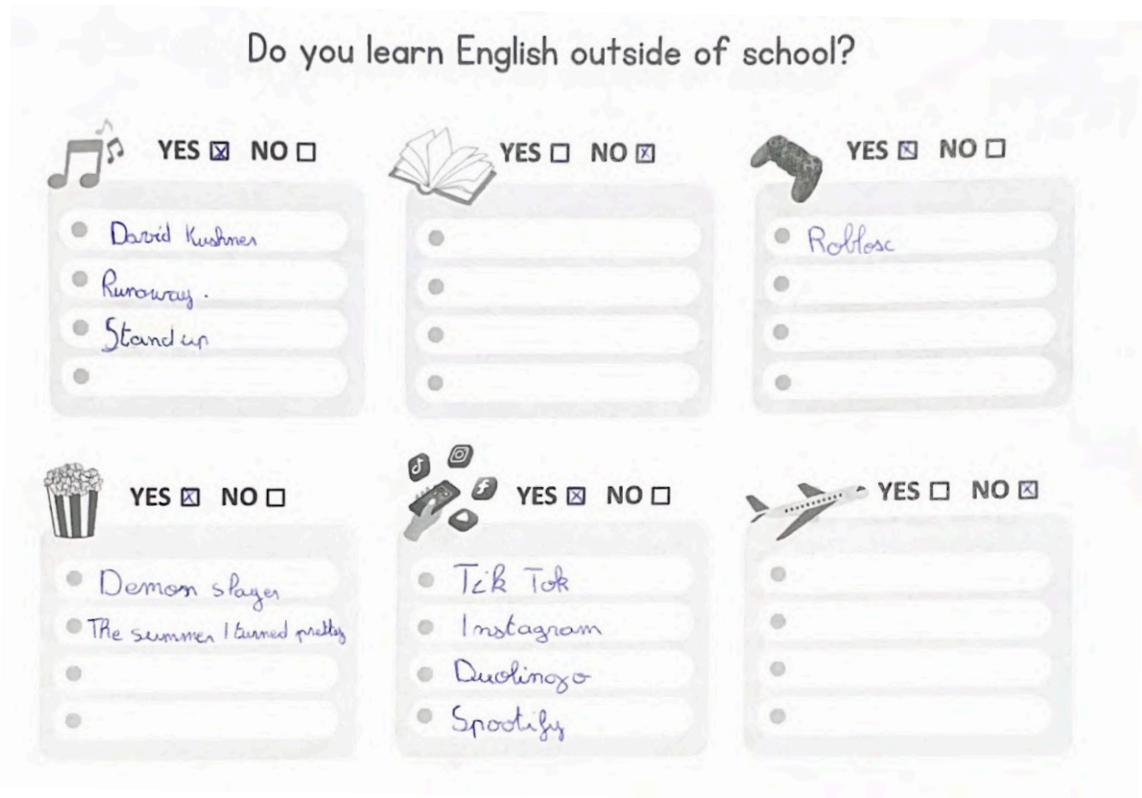 Do you learn English outside of school?
YES ☒ NO ☐
David Kushner
Runaway.
Stand up
YES ☐ NO ☒
YES ☒ NO ☐
Roblosc
YES ☒ NO ☐
Demon slayer
The summer I turned pretty
YES ☒ NO ☐
Tik Tok
Instagram
Duolingo
Spootify
YES ☐ NO ☒